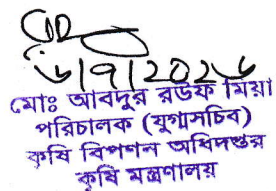 ৬/৭/২০২৬
মোঃ আবদুর রউফ মিয়া
পরিচালক (যুগ্মসচিব)
কৃষি বিপণন অধিদপ্তর
কৃষি মন্ত্রণালয়